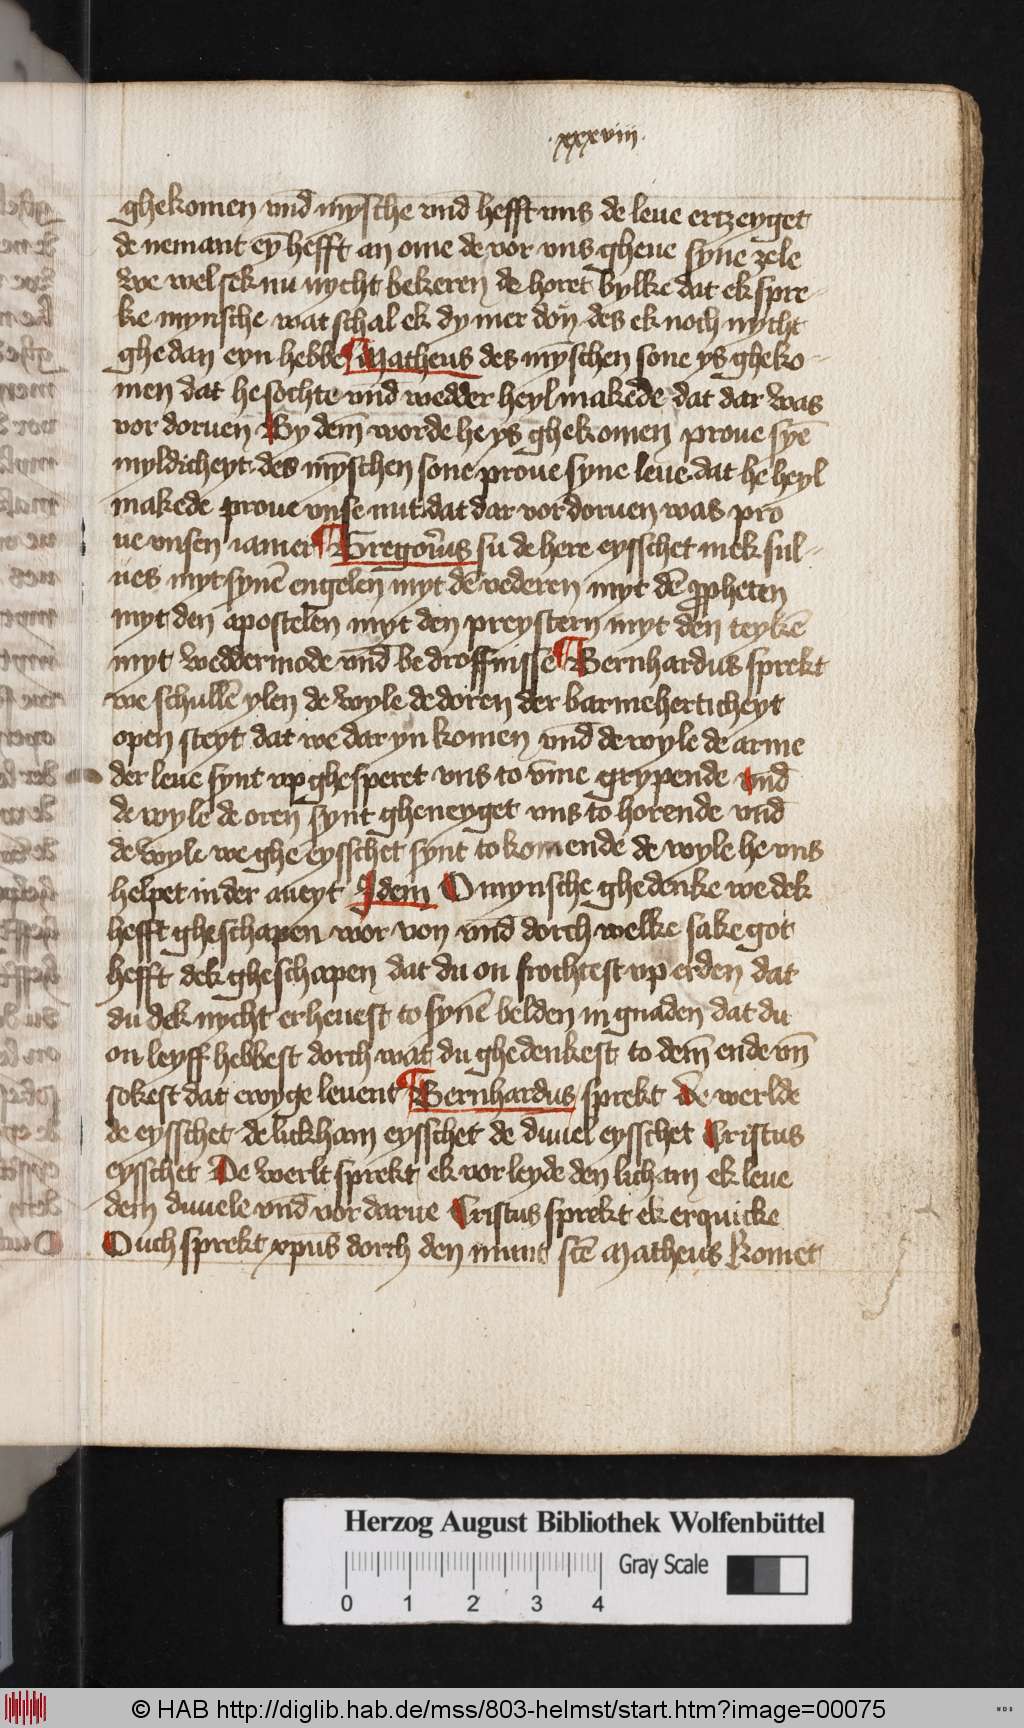 .xxxviij.
ghekomen vnd̄ mȳsche vnd̄ hefft vns de leue ertzeyget
de nemant eȳ hefft an ome de vor vns gheue syne zele
we wel sek nu nycht bekeren de horet bylke dat ek spre-
ke mynsche wat schal ek dy mer don des ek noch nycht
ghedan eyn hebbe Matheus des mȳschen sone ys gheko-
men dat he sochte vnd̄ wedder heyl makede dat dar was
vor doruen By dem̄ worde he ys ghekomen proue syē
myldicheyt des mȳschen sone proue syne leue dat he heyl
makede proue vnse nut dat dar vordoruen was pro
ue vnsen iamer Gregorius su de here eysschet mek sul-
ues myt synē engelen myt dē vederen myt dē ꝓpheten
myt den apostelen myt den preystern myt den teykē
myt weddermode vnd̄ bedroffnisse Bernhardus sprekt
we schullē ylen de wyle de doren der barmeherticheyt
open steyt dat we dar yn komen vnd̄ de wyle de arme
der leue synt vp ghesperet vns to v̄me grypende vnd̄
de wyle de oren synt gheneyget vns to horende vnd̄
de wyle we ghe eysschet synt to komende de wyle he vns
helpet in der aueyt Idem O mynsche ghedenke we dek
hefft gheschapen wor von vnd̄ dorch welke sake got
hefft dek gheschapen dat du on frochtest vp erden dat
du dek nycht erheuest to synē belden in gnaden dat du
on leyff hebbest dorch wat du ghedenkest to dem̄ ende vn̄
sokest dat ewyge leuent Bernhardus sprekt De werlde
de eysschet de lickham eysschet de duuel eysschet Cristus
eysschet De werlt sprekt ek vorleyde den licham ek leue
dem duuele vnd̄ vordarue Cristus sprekt ek erquicke
Ouch sprekt xpus dorch den munt sc̄te Matheus Komet
Herzog August Bibliothek Wolfenbüttel
Gray Scale
0 1 2 3 4
© HAB http://diglib.hab.de/mss/803-helmst/start.htm?image=00075